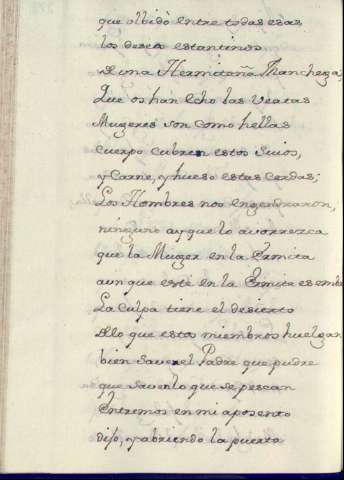 que olbidò entre todas esas
los deseta estantinos
de una Hermitaña Manchega,
Que os han echo las veatas
Mugeres son como hellas
cuerpo cubren estos suios,
y Carne, y hueso estas cerdas;
Los Hombres nos engendraron,
ninguno ay que lo avorrezca
que la Muger en la Ermita
aunque estè en la Ermita es emb
La culpa tiene el desierto
de lo que estos miembros huelgan
bien save el Padre que pudre
que save lo que se pescan
Entremos en mi aposento
dijo, y abriendo la puerta